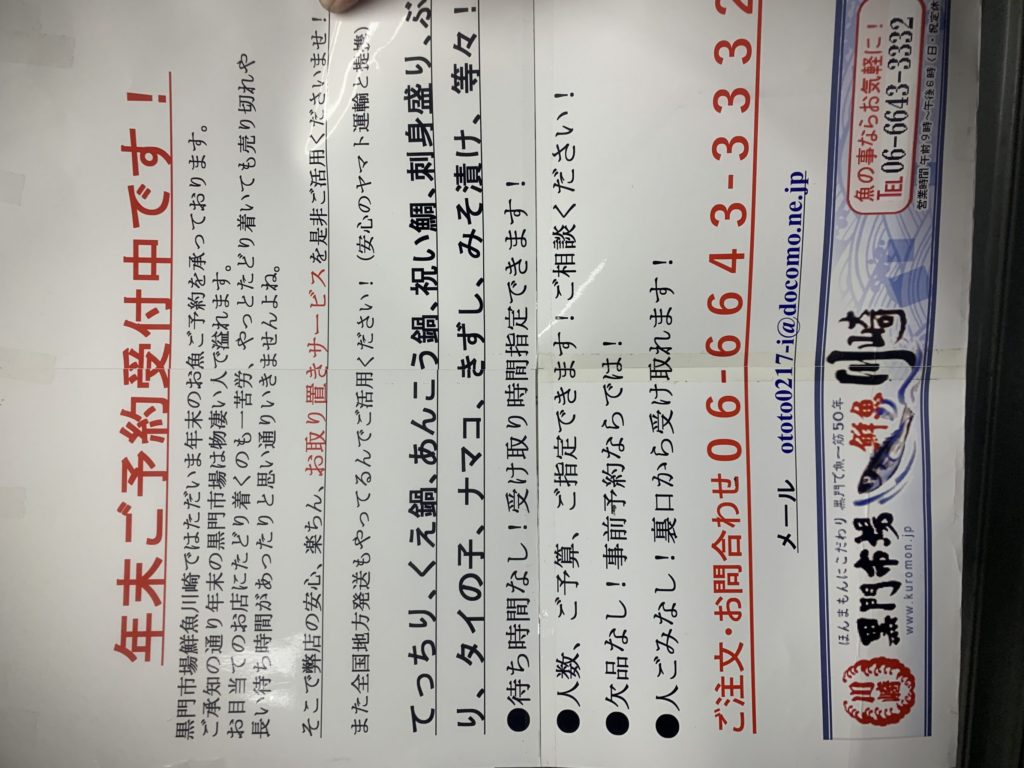 年末ご予約受付中です！
黒門市場鮮魚川崎ではただいま年末のお魚ご予約を承っております。
ご承知の通り年末の黒門市場は物凄い人で溢れます。
お目当てのお店にたどり着くのも一苦労、やっとたどり着いても売り切れや
長い待ち時間があったりと思い通りいきませんよね。
そこで弊店の安心、楽ちん、お取り置きサービスを是非ご活用くださいませ！
また全国地方発送もやってるんでご活用ください！（安心のヤマト運輸と提携）
てっちり、くえ鍋、あんこう鍋、祝い鯛、刺身盛り、ぶ
り、タイの子、ナマコ、きずし、みそ漬け、等々！
●待ち時間なし！受け取り時間指定できます！
●人数、ご予算、ご指定できます！ご相談ください！
●欠品なし！事前予約ならでは！
●人ごみなし！裏口から受け取れます！
ご注文・お問合わせ０６-６６４３-３３３２
メール　ototo0217-i@docomo.ne.jp
川崎
ほんまもんにこだわり 黒門で魚一筋50年
黒門市場 鮮魚 川崎
www.kuromon.jp
魚の事ならお気軽に！
TEL 06-6643-3332
営業時間 午前9時〜午後6時（日・祝定休